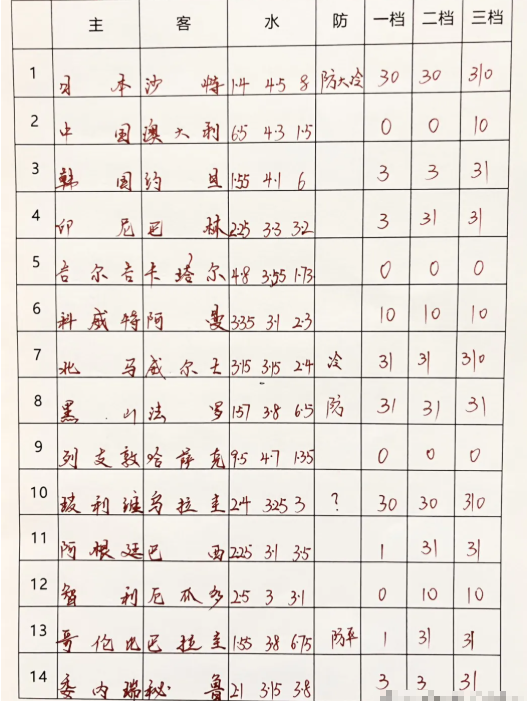 主 客 水 防 一档 二档 三档
1 日本 沙特 1.4 4.5 8 防大冷 30 30 310
2 中国 澳大利 6.5 4.3 1.5 0 0 10
3 韩国 约旦 1.55 4.1 6 3 3 31
4 印尼 巴林 2.25 3.3 3.2 3 31 31
5 吉尔吉 卡塔尔 4.8 3.55 1.73 0 0 0
6 科威特 阿曼 3.35 3.1 2.3 10 10 10
7 北马 威尔士 3.15 3.15 2.4 冷 31 31 310
8 黑山 法罗 1.57 3.8 6.5 防 31 31 31
9 列支敦 哈萨克 9.5 4.7 1.35 0 0 0
10 玻利维 乌拉圭 2.4 3.25 3 ? 30 30 310
11 阿根廷 巴西 2.25 3.1 3.5 1 31 31
12 智利 厄瓜多 2.5 3 3.1 0 10 10
13 哥伦比 巴拉圭 1.55 3.8 6.75 防平 1 31 31
14 委内瑞 秘鲁 2.1 3.15 3.8 3 3 31